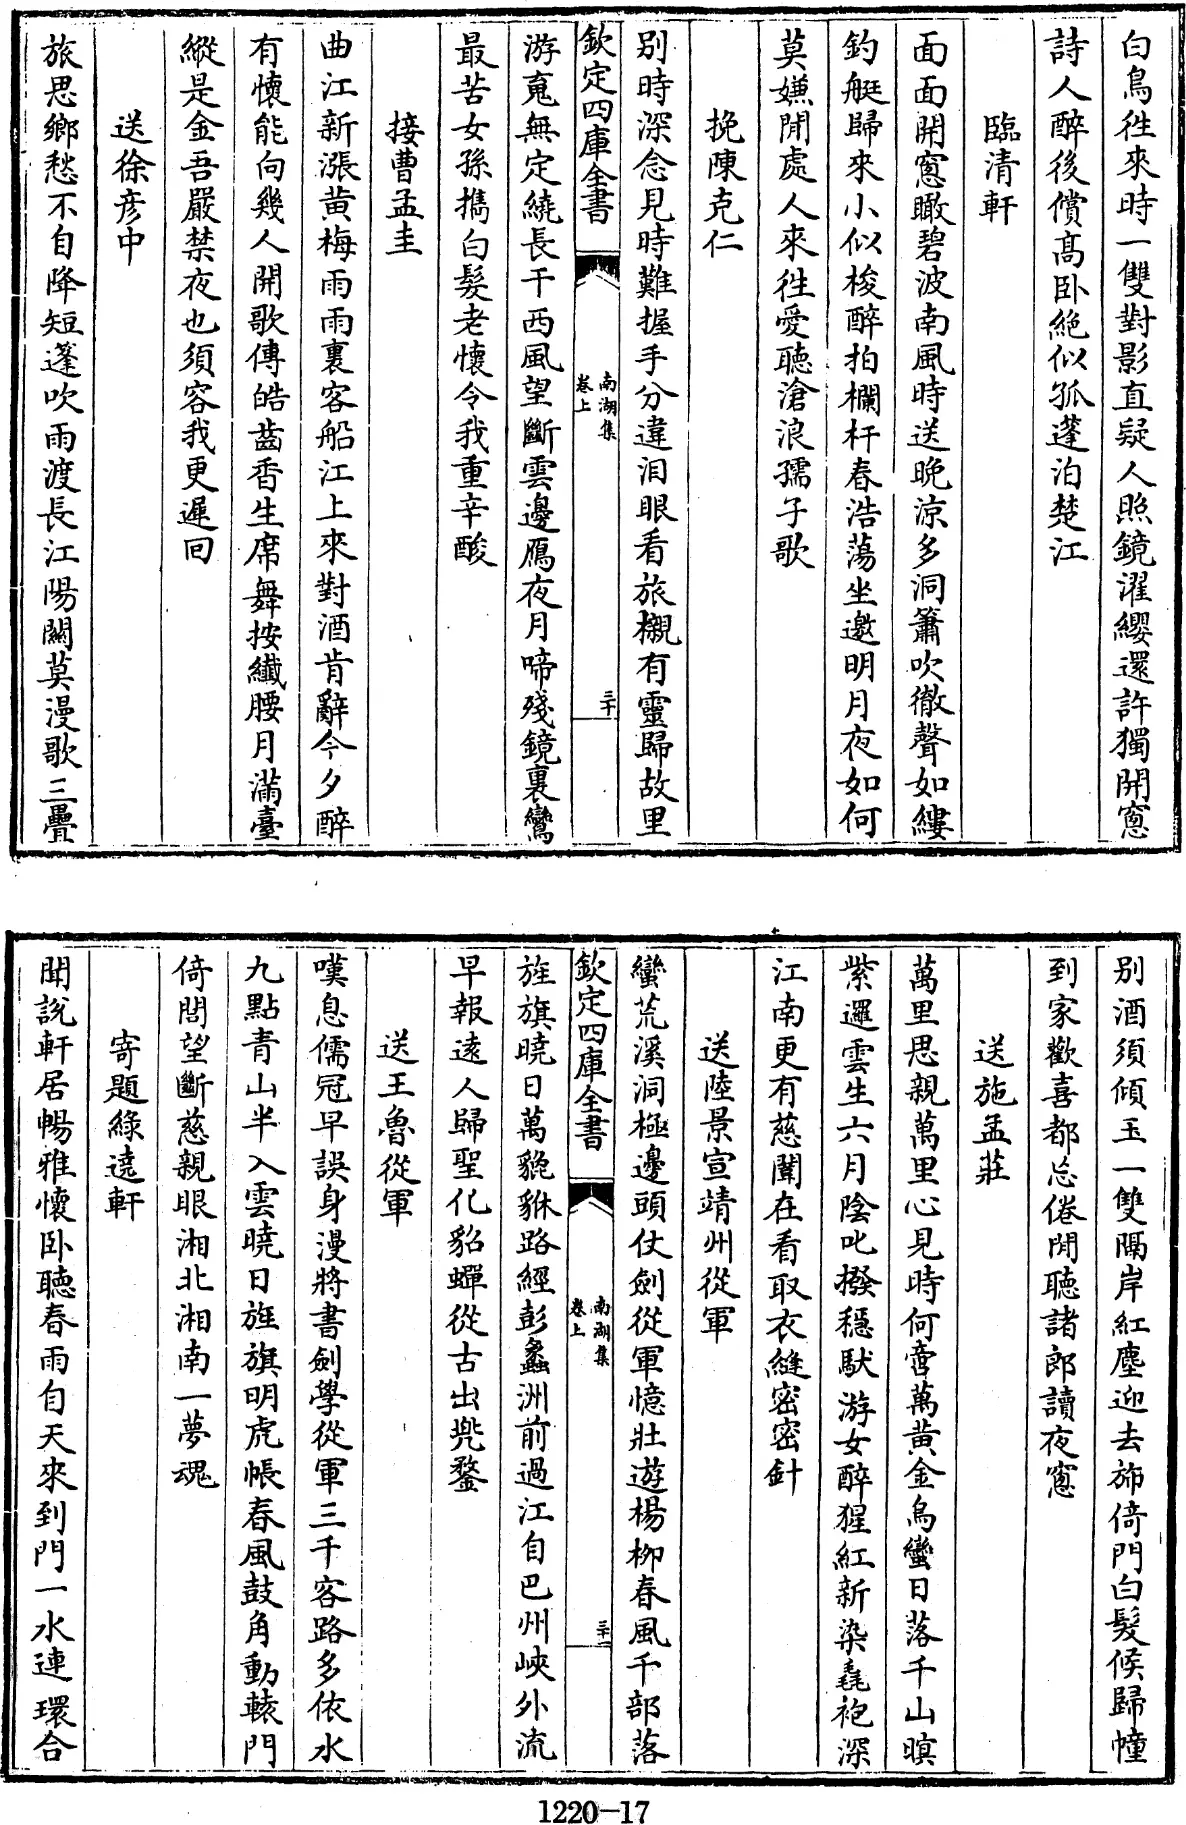 白鳥徃來時一雙對影直疑人照鏡濯纓還許獨開窻
詩人醉後償髙卧絶似孤蓬泊楚江
臨清軒
面面開窻瞰碧波南風時送晚涼多洞簫吹徹聲如縷
釣艇歸來小似梭醉拍欄杆春浩蕩坐邀明月夜如何
莫嫌閒處人來徃愛聽滄浪孺子歌
挽陳克仁
别時深念見時難握手分違泪眼看旅櫬有靈歸故里
欽定四庫全書
南湖集
卷上
三十
游䰟無定繞長干西風望斷雲邊鴈夜月啼殘鏡裏鸞
最苦女孫㩗白髮老懷令我重辛酸
接曹孟圭
曲江新漲黄梅雨雨裏客船江上來對酒肯辭今夕醉
有懷能向幾人開歌傳皓齒香生席舞按纎腰月滿臺
縱是金吾嚴禁夜也須容我更遲回
送徐彦中
旅思鄉愁不自降短蓬吹雨渡長江陽關莫漫歌三疊
别酒須傾玉一雙隔岸紅塵迎去斾倚門白髮候歸幢
到家歡喜都忘倦閒聽諸郎讀夜窻
送施孟莊
萬里思親萬里心見時何啻萬黄金烏蠻日落千山暝
紫邏雲生六月陰叱撥穩馱游女醉猩紅新染毳袍深
江南更有慈闈在看取衣縫密密針
送陸景宣靖州從軍
蠻荒溪洞極邊頭仗劍從軍憶壯遊楊柳春風千部落
欽定四庫全書
南湖集
卷上
三十一
旌旗曉日萬貔貅路經彭蠡洲前過江自巴州峽外流
早報逺人歸聖化貂蟬從古出兠鍪
送王魯從軍
嘆息儒冠早誤身漫將書劍學從軍三千客路多依水
九點青山半入雲曉日旌旗明虎帳春風鼓角動轅門
倚閭望斷慈親眼湘北湘南一夢魂
寄題緑遶軒
聞說軒居暢雅懷卧聽春雨自天來到門一水連環合
1220—17